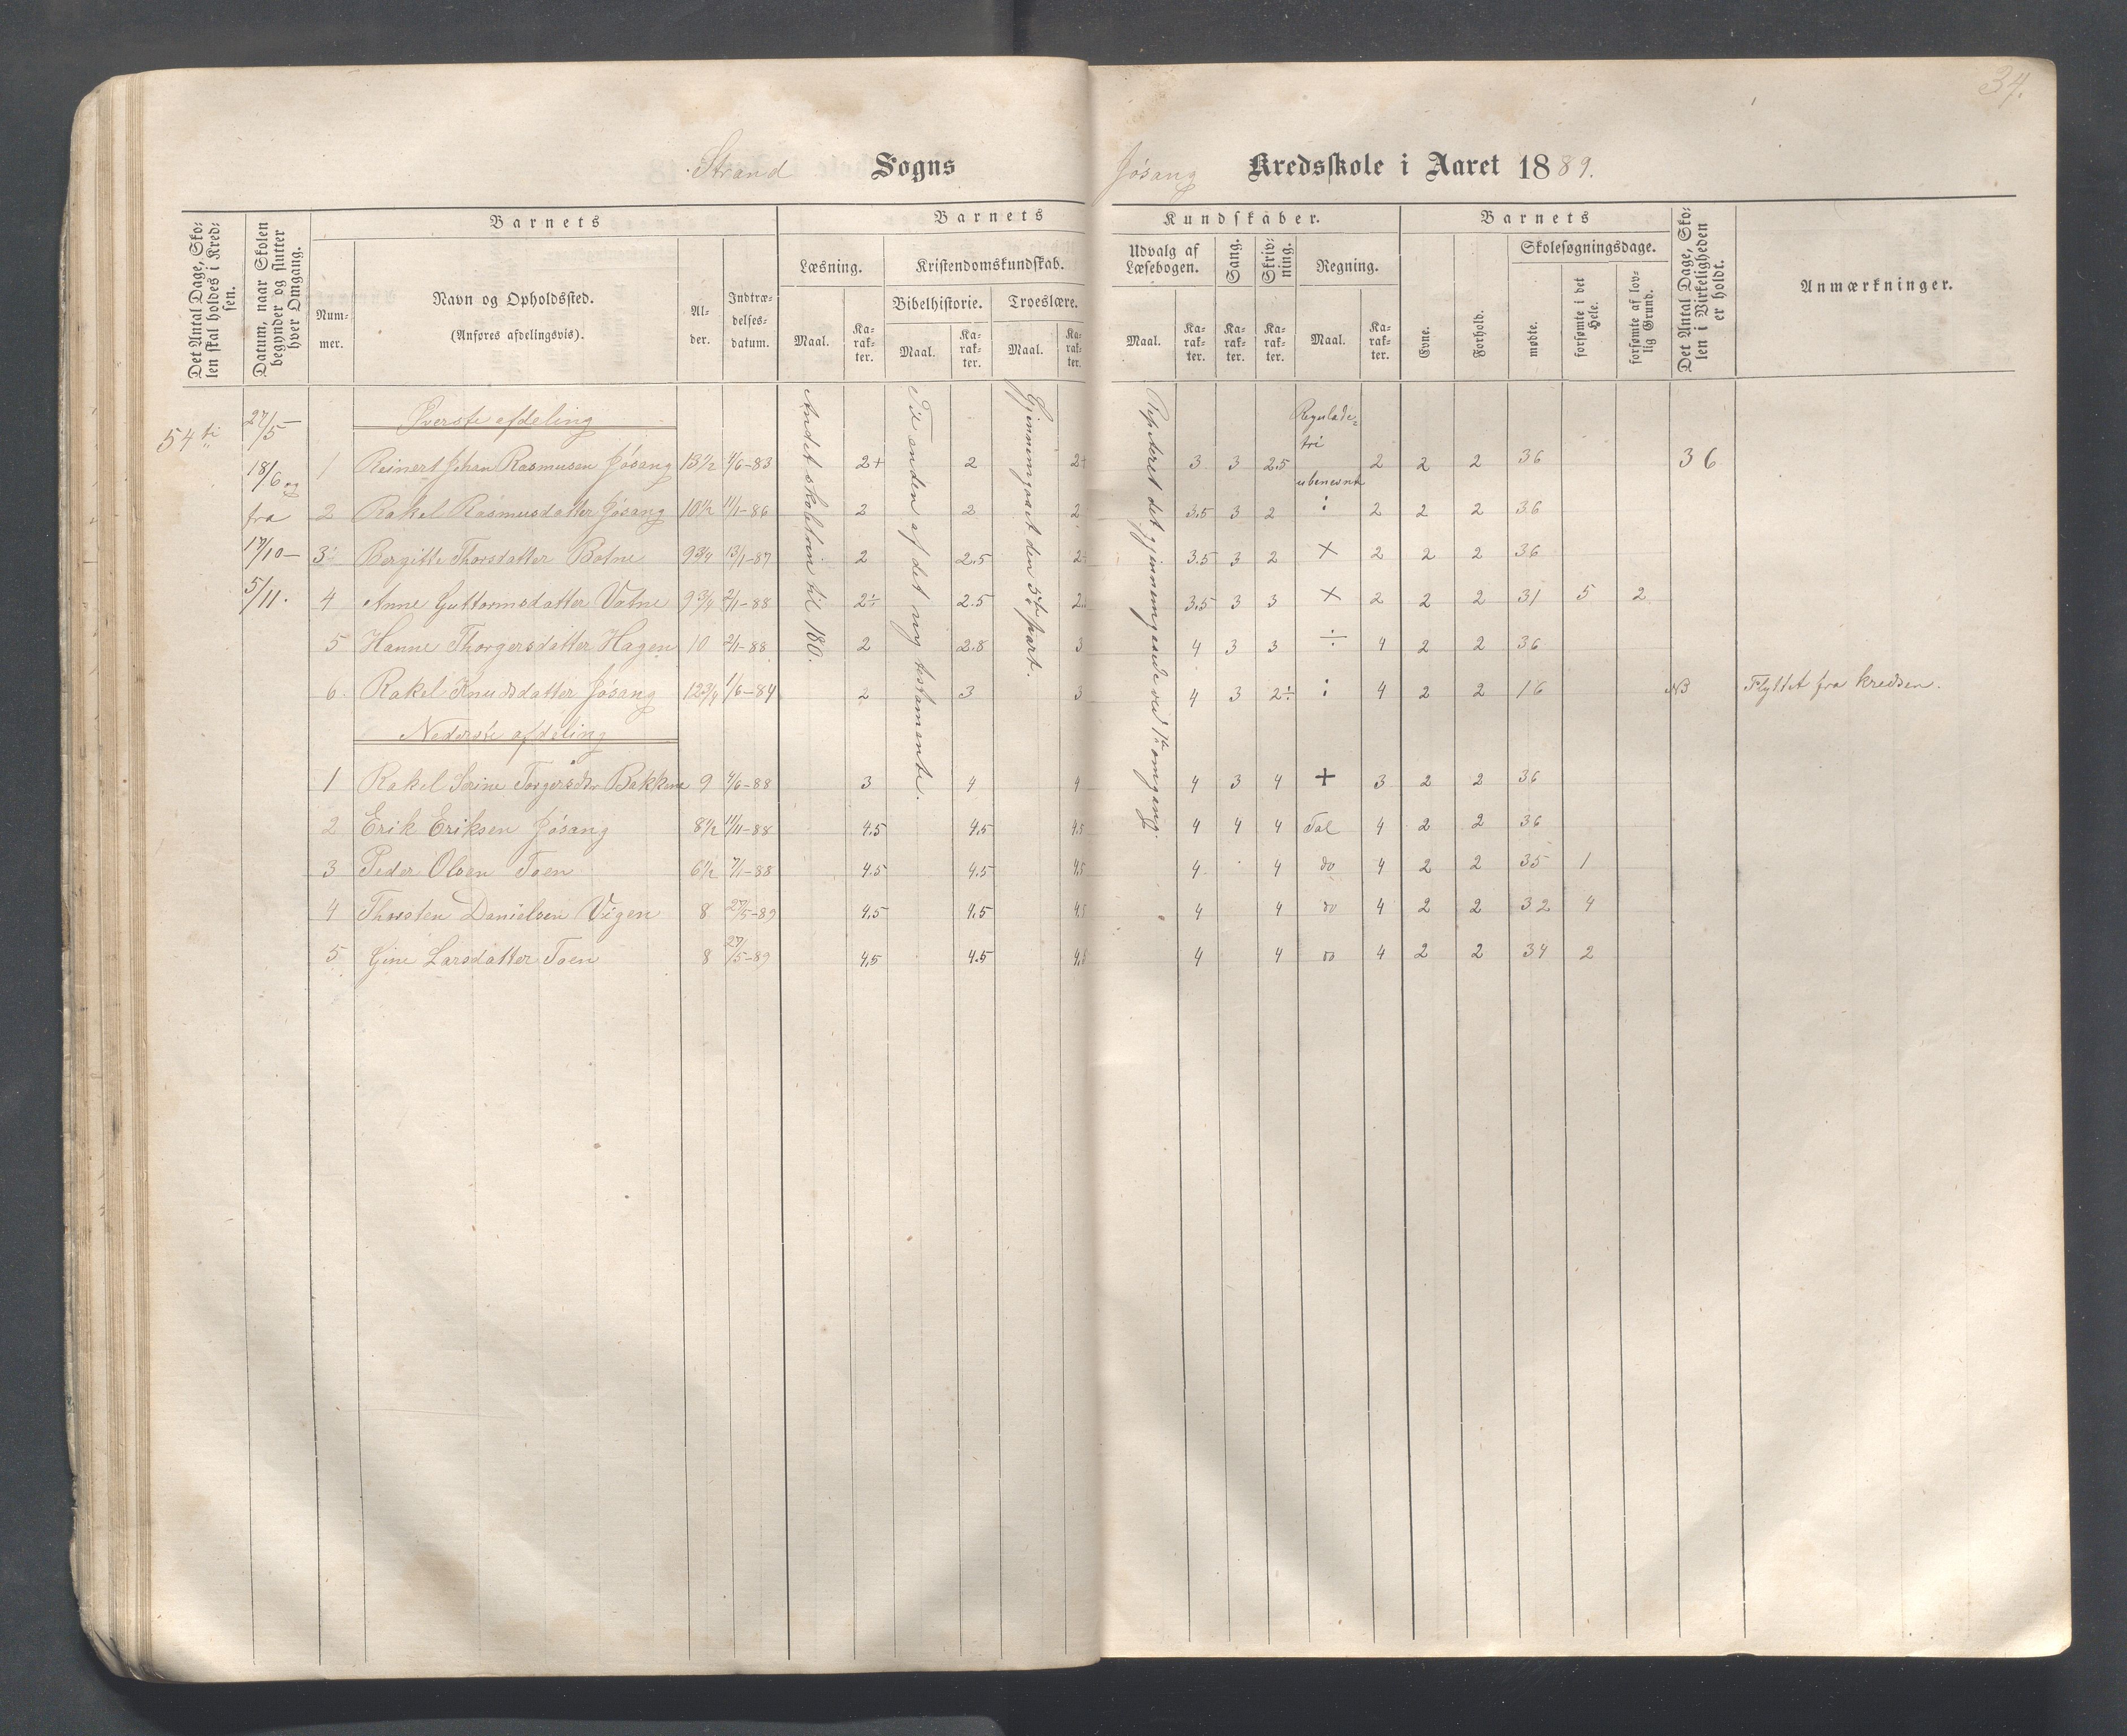 34.
Strand Sogns Jósang Kredsskole i Aaret 1889.
Det Antal Dage, Skolen skal holdes i Kredsen.
Datum, naar Skolen begynder og slutter hver Omgang.
Barnets
Nummer.
Navn og Opholdssted.
(Anføres afdelingsvis).
Alder.
Indtrædelsesdatum.
Barnets Kundskaber.
Læsning.
Maal.
Karakter.
Kristendomskundskab.
Bibelhistorie.
Maal.
Karakter.
Troeslære.
Maal.
Karakter.
Udvalg af Læsebogen.
Maal.
Karakter.
Sang.
Karakter.
Skrivning.
Karakter.
Regning.
Maal.
Karakter.
Barnets
Evne.
Forhold.
Skolesøgningsdage.
mødte.
forsømte i det Hele.
forsømte af lovlig Grund.
Det Antal Dage, Skolen i Virkeligheden er holdt.
Anmærkninger.
54 ti
27/5 –
18/6 og
fra
17/10 –
5/11.
Andet skoletrin til 180.
Til enden af det ny testamente.
Gjennemgaaet den 5te part.
Repeteret det gjennemgaaede ved 1te omgang.
Øverste afdeling
1 Reinert Johan Rasmusen Jósang 13½ 4/6-83 2+ 2 2+ 3 3 2.5 Reguladetri ubenevnt 2 2 2 36 36
2 Rakel Rasmusdatter Jósang 10½ 11/1-86 2 2 2 3.5 3 2 : 2 2 2 36
3 Bergitte Thorsdatter Botne 9¾ 13/1-87 2 2.5 2÷ 3.5 3 2 × 2 2 2 36
4 Anne Guttormsdatter Vatne 9¾ 2/1-88 2÷ 2.5 2. 3,5 3 3 × 2 2 2 31 5 2
5 Hanne Thorgersdatter Hagen 10 2/1-88 2 2.8 3 4 3 3 ÷ 4 2 2 36
6 Rakel Knudsdatter Jósang 12¾ 1/6-84 2 3 3 4 3 2÷ : 4 2 2 16 NB Flyttet fra kredsen.
Nederste afdeling
1 Rakel Serine Torgersdtr Bakken 9 4/6-88 3 4 4 4 3 4 + 3 2 2 36
2 Erik Eriksen Jósang 8½ 11/11-88 4.5 4.5 4.5 4 4 4 Tal 4 2 2 36
3 Peder Olsen Toen 6½ 7/1-88 4.5 4.5 4.5 4 4 do 4 2 2 35 1
4 Thorsten Danielsen Vigen 8 27/5-89 4.5 4.5 4.5 4 4 do 4 2 2 32 4
5 Gine Larsdatter Toen 8 27/5-89 4.5 4.5 4.5 4 4 do 4 2 2 34 2